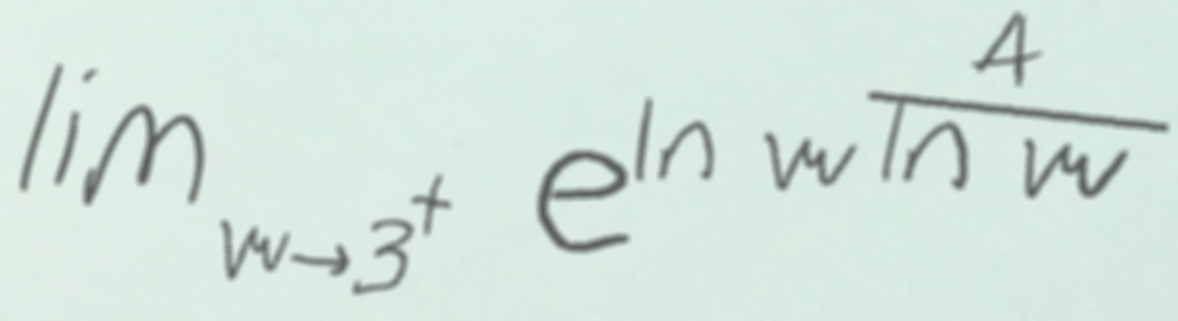 \lim_{w \to 3^+} e^{\ln w \frac{4}{\ln w}}